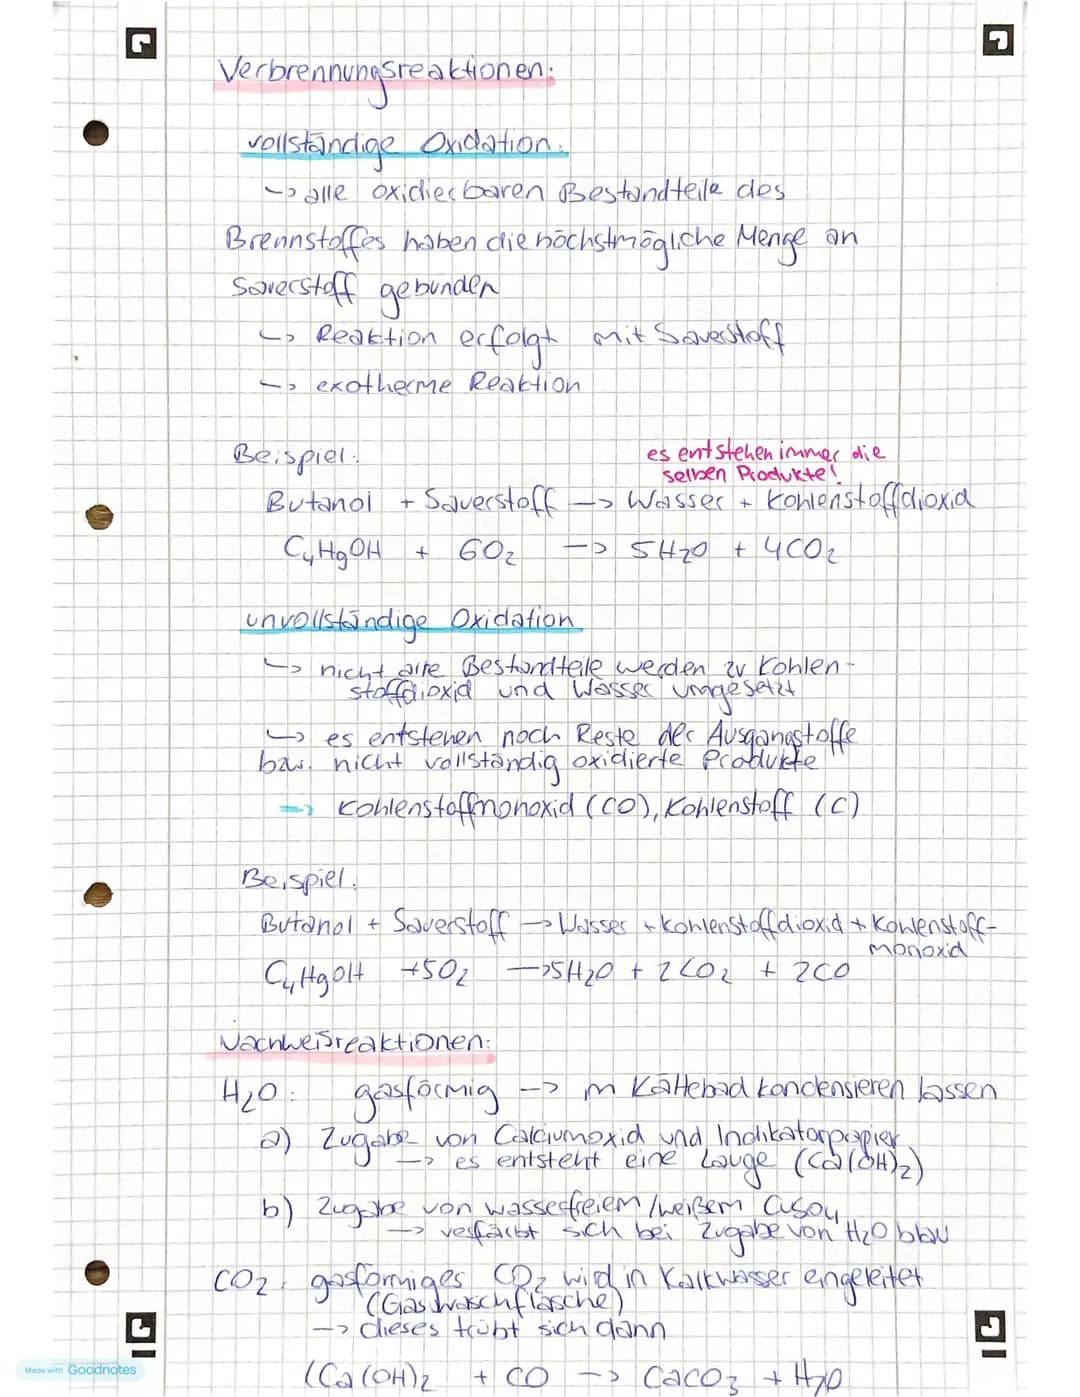 Verbrennungsreaktionen:
vollständige Oxidation:
-> alle oxidierbaren Bestandteile des
Brennstoffes haben die höchstmögliche Menge an
Sauerstoff gebunden
-> Reaktion erfolgt mit Sauerstoff
-> exotherme Reaktion
es entstehen immer die
selben Produkte!
Beispiel:
Butanol + Sauerstoff -> Wasser + Kohlenstoffdioxid
C₄H₉OH + 6O₂ -> 5H₂O + 4CO₂
unvollständige Oxidation
-> nicht alle Bestandteile werden zu Kohlen-
stoffdioxid und Wasser umgesetzt
-> es entstehen noch Reste der Ausgangstoffe
bzw. nicht vollständig oxidierte Produkte
=> Kohlenstoffmonoxid (CO), Kohlenstoff (C)
Beispiel:
Butanol + Sauerstoff -> Wasser + Kohlenstoffdioxid + Kohlenstoff-
monoxid
C₄H₉OH +5O₂ -> 5H₂O + 2CO₂ + 2CO
Nachweisreaktionen:
H₂O: gasförmig -> in Kältebad kondensieren lassen
a) Zugabe von Calciumoxid und Indikatorpapier
-> es entsteht eine Lauge (Ca(OH)₂)
b) Zugabe von wasserfreiem/weißem CuSO₄
-> verfärbt sich bei Zugabe von H₂O blau
CO₂: gasförmiges CO₂ wird in Kalkwasser eingeleitet
(Gaswaschflasche)
-> dieses trübt sich dann
(Ca(OH)₂ + CO -> CaCO₃ + H₂O
Made with Goodnotes